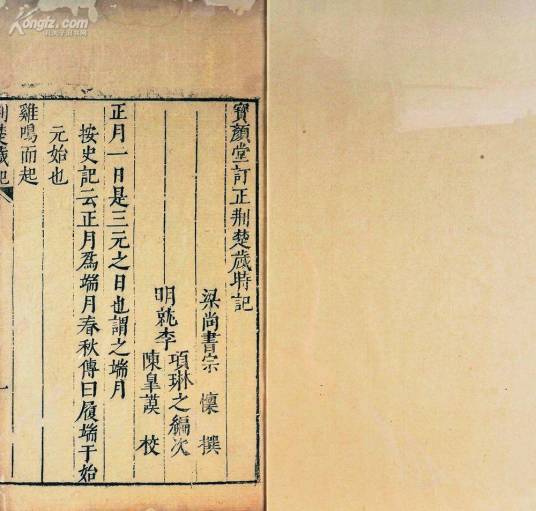 寶顏堂訂正荆楚歲時記
梁尚書宗 懔 撰
明就李 項琳之編次
陳皐謨 校
正月一日是三元之日也謂之端月
按史記云正月爲端月春秋傳曰履端于始
元始也
雞鳴而起
荆楚歲記
一
Kongfz.com
孔夫子旧书网